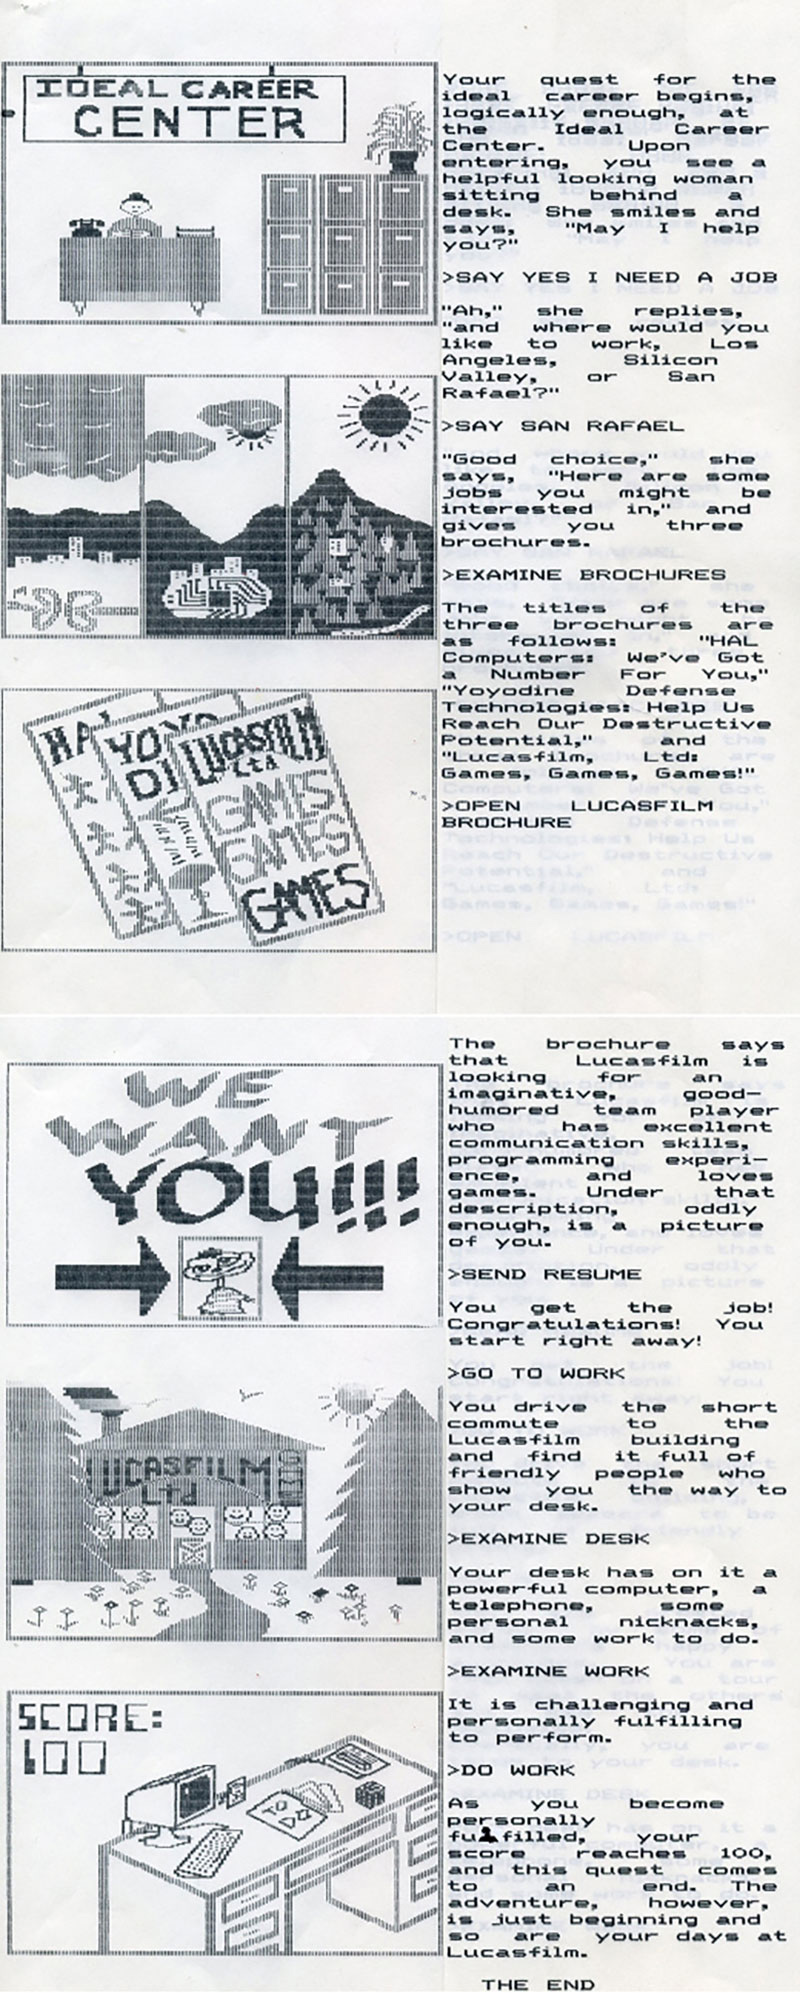 IDEAL CAREER
CENTER
Your quest for the
ideal career begins,
logically enough, at
the Ideal Career
Center. Upon
entering, you see a
helpful looking woman
sitting behind a
desk. She smiles and
says, "May I help
you?"
>SAY YES I NEED A JOB
"Ah," she replies,
"and where would you
like to work, Los
Angeles, Silicon
Valley, or San
Rafael?"
>SAY SAN RAFAEL
"Good choice," she
says, "Here are some
jobs you might be
interested in," and
gives you three
brochures.
>EXAMINE BROCHURES
The titles of the
three brochures are
as follows: "HAL
Computers: We've Got
a Number For You,"
"Yoyodine Defense
Technologies: Help Us
Reach Our Destructive
Potential," and
"Lucasfilm, Ltd:
Games, Games, Games!"
>OPEN LUCASFILM
BROCHURE
HA
YOYO
DI
LUCASFILM
Ltd
GAMES
GAMES
GAMES
WE
WANT
YOU!!!
The brochure says
that Lucasfilm is
looking for an
imaginative, good-
humored team player
who has excellent
communication skills,
programming experi-
ence, and loves
games. Under that
description, oddly
enough, is a picture
of you.
>SEND RESUME
You get the job!
Congratulations! You
start right away!
>GO TO WORK
You drive the short
commute to the
Lucasfilm building
and find it full of
friendly people who
show you the way to
your desk.
>EXAMINE DESK
Your desk has on it a
powerful computer, a
telephone, some
personal nicknacks,
and some work to do.
>EXAMINE WORK
It is challenging and
personally fulfilling
to perform.
>DO WORK
As you become
personally
fulfilled, your
score reaches 100,
and this quest comes
to an end. The
adventure, however,
is just beginning and
so are your days at
Lucasfilm.
THE END
LUCASFILM
Ltd
SCORE:
100